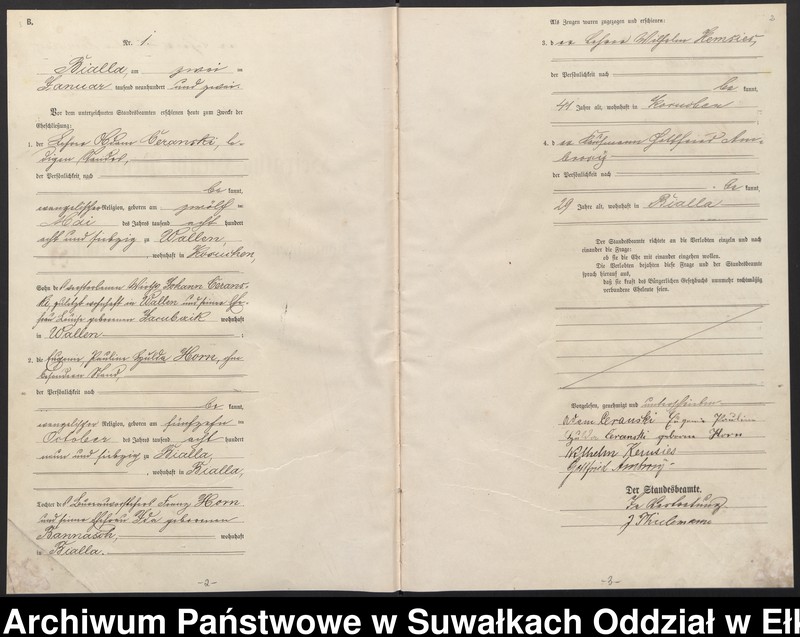 B.
Nr. 1.
Bialla, am zwei ten
Januar tausend neunhundert und zwei.
Vor dem unterzeichneten Standesbeamten erschienen heute zum Zwecke der
Eheschließung:
1. der Lehrer Adam Ceranski, le-
digen Standes,
der Persönlichkeit nach
be kannt,
evangelischer Religion, geboren am zwölf ten
Mai des Jahres tausend acht hundert
acht und siebzig zu Wallen,
, wohnhaft in
Sohn des verstorbenen Wirths Johann Cerans-
ki, zuletzt wohnhaft in Wallen und seiner Ehe-
frau Louise geborenen wohnhaft
in Wallen ;
2. die Eugenie, Pauline Hulda Horn, ohne
besonderen Stand,
der Persönlichkeit nach
be kannt,
evangelischer Religion, geboren am fünfzehn ten
October des Jahres tausend acht hundert
neun und siebzig zu Bialla,
, wohnhaft in Bialla,
Tochter des Franz Horn
und seiner Ehefrau Ida geborenen
Bannasch, wohnhaft
in Bialla.
-2-
Als Zeugen waren zugezogen und erschienen:
3. der Lehrer Wilhelm Kemsies,
der Persönlichkeit nach
be kannt,
41 Jahre alt, wohnhaft in
;
4. der Kaufmann Gottfried Am-
brosy
der Persönlichkeit nach
be kannt,
29 Jahre alt, wohnhaft in Bialla
Der Standesbeamte richtete an die Verlobten einzeln und nach
einander die Frage:
ob sie die Ehe mit einander eingehen wollen.
Die Verlobten bejahten diese Frage und der Standesbeamte
sprach hierauf aus,
daß sie kraft des Bürgerlichen Gesetzbuchs nunmehr rechtmäßig
verbundene Eheleute seien.
Vorgelesen, genehmigt und unterschrieben.
Adam Ceranski Eugenie Pauline
Hulda Ceranski geborene Horn
Wilhelm Kemsies
Gottfried Ambrosy
Der Standesbeamte.
In Vertretung
-3-
Archiwum Państwowe w Suwałkach Oddział w Ełk